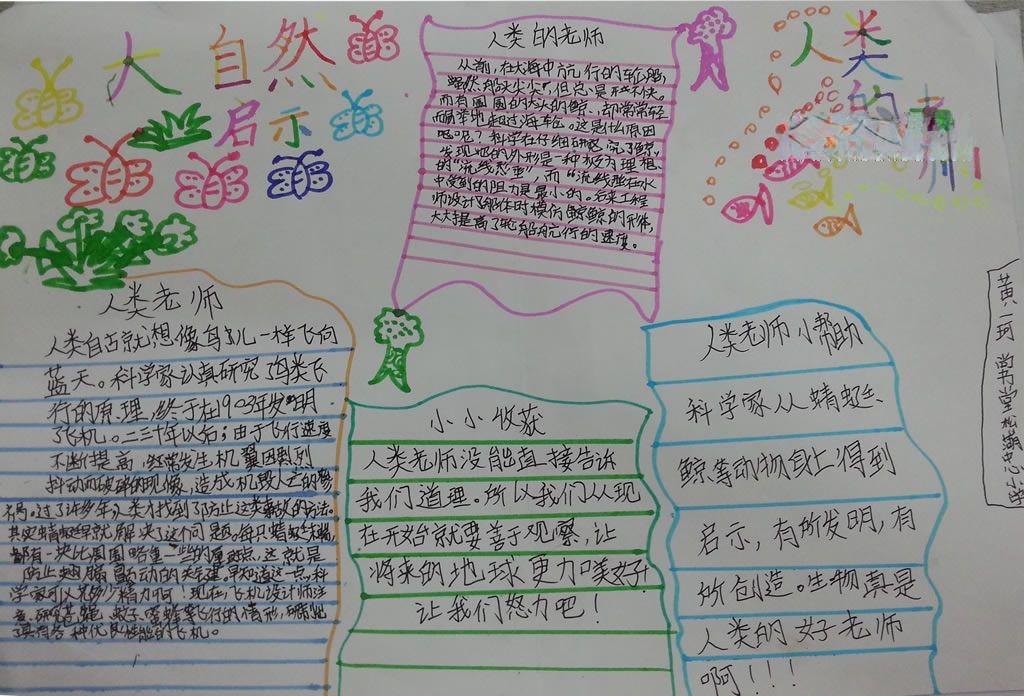 大自然
启示
人类的老师
从前,在大海中航行的轮船,
虽然船头尖尖,但总是开不快。
而有圆圆的大头的鲸,却常常轻
而易举地超过海轮。这是什么原因
呢?科学家仔细研究了鲸,
发现它的外形是一种极为理想
的“流线型”,而“流线型”在水
中受到的阻力是最小的。后来工程
师设计船体时模仿鲸的形体,
大大提高了轮船航行的速度。
人类
的
师
人类老师
人类自古就想像鸟儿一样飞向
蓝天。科学家认真研究了鸟类飞
行的原理,终于在1903年发明
了飞机。二三十年以后,由于飞行速度
不断提高,经常发生机翼因剧烈
抖动而破碎的现象,造成机毁人亡的惨
祸。过了许多年,人类才找到了防止这类事故的方法。
其实蜻蜓早就解决了这个问题。每只蜻蜓的翅膀
都有一块比周围略重一些的厚斑点,这就是
防止翅膀颤动的关键。早知道这一点,科
学家可以少花多少精力啊!现在,飞机设计师注
意研究苍蝇、蚊子、蜜蜂等飞行的情形,研制出
了具有各种优良性能的飞机。
小小收获
人类老师没能直接告诉
我们道理。所以我们从现
在开始就要善于观察,让
将来的地球更加美好!
让我们怒力吧!
人类老师小帮助
科学家从蜻蜓、
鲸等动物身上得到
启示,有所发明,有
所创造。生物真是
人类的好老师
啊!!!
黄一珂 尚书堂松湖中心小学